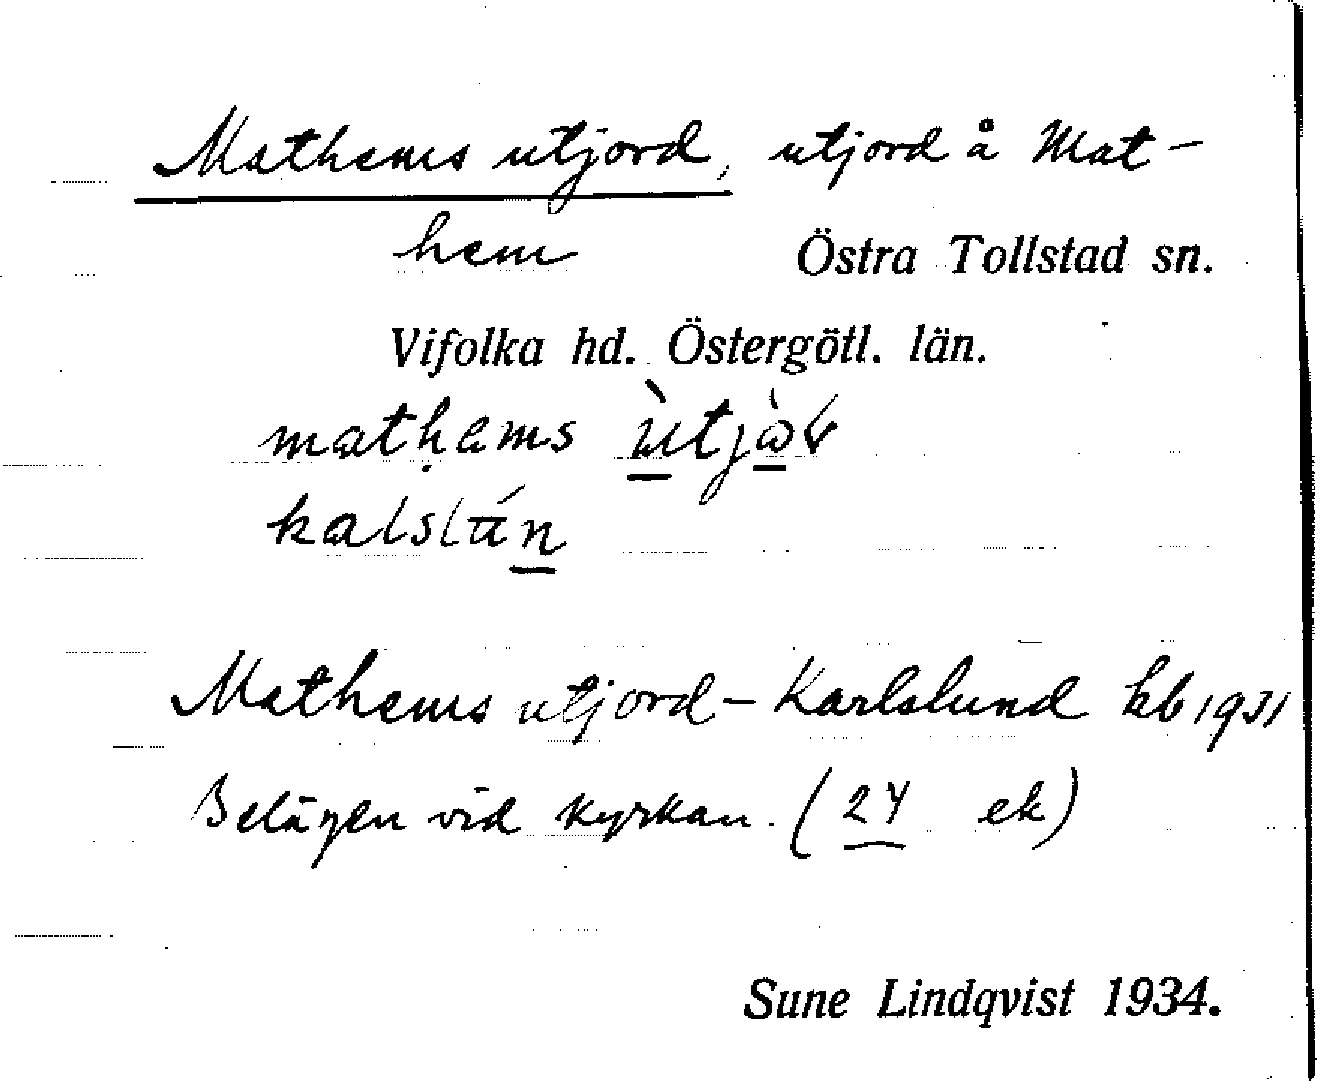 Mathems utjord, utjord å Mat-
hem Östra Tollstad sn.
Vifolka hd. Östergötl. län.
matḥems
Mathems utjord - Karlslund kb 1931
Belägen vid kyrkan. (24 ek)
Sune Lindqvist 1934.